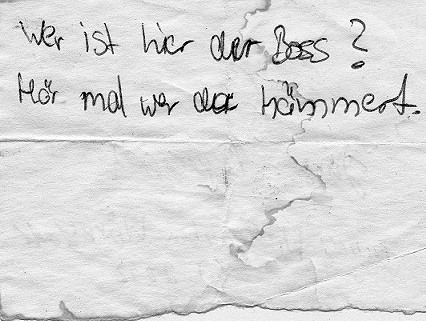 Wer ist hier der Boss?
Hör mal wer da hämmert.